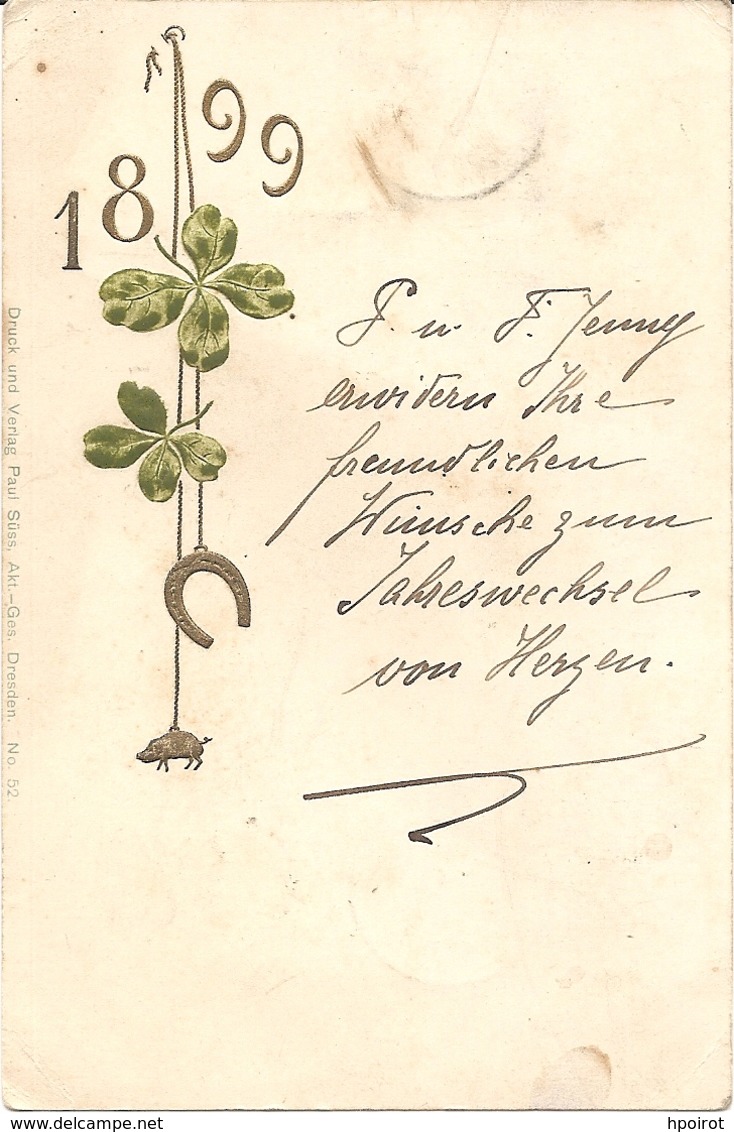 1899
P. u. F. Jenny
erwidern Ihre
freundlichen
Wünsche zum
Jahreswechsel
von Herzen.
Druck und Verlag Paul Süss, Akt.-Ges. Dresden. No. 52
www.delcampe.net
hpoirot